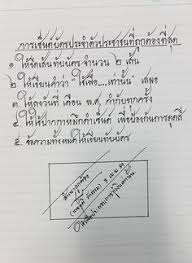 การเซ็นต์บัตรประจำตัวประชาชนที่ถูกต้องที่สุด
๑. ให้ขีดเส้นทับบัตร จำนวน ๒ เส้น
๒. ให้เขียนคำว่า "ใช้เพื่อ....เท่านั้น" เสมอ
๓. ให้ลงวันที่ เดือน พ.ศ. กำกับทุกครั้ง
๔. ให้ใช้ปากกาหมึกดำเซ็นต์ เพื่อป้องกันการ
๕. ข้อความทั้งหมดให้เขียนทับบัตร
สำเนาถูกต้อง